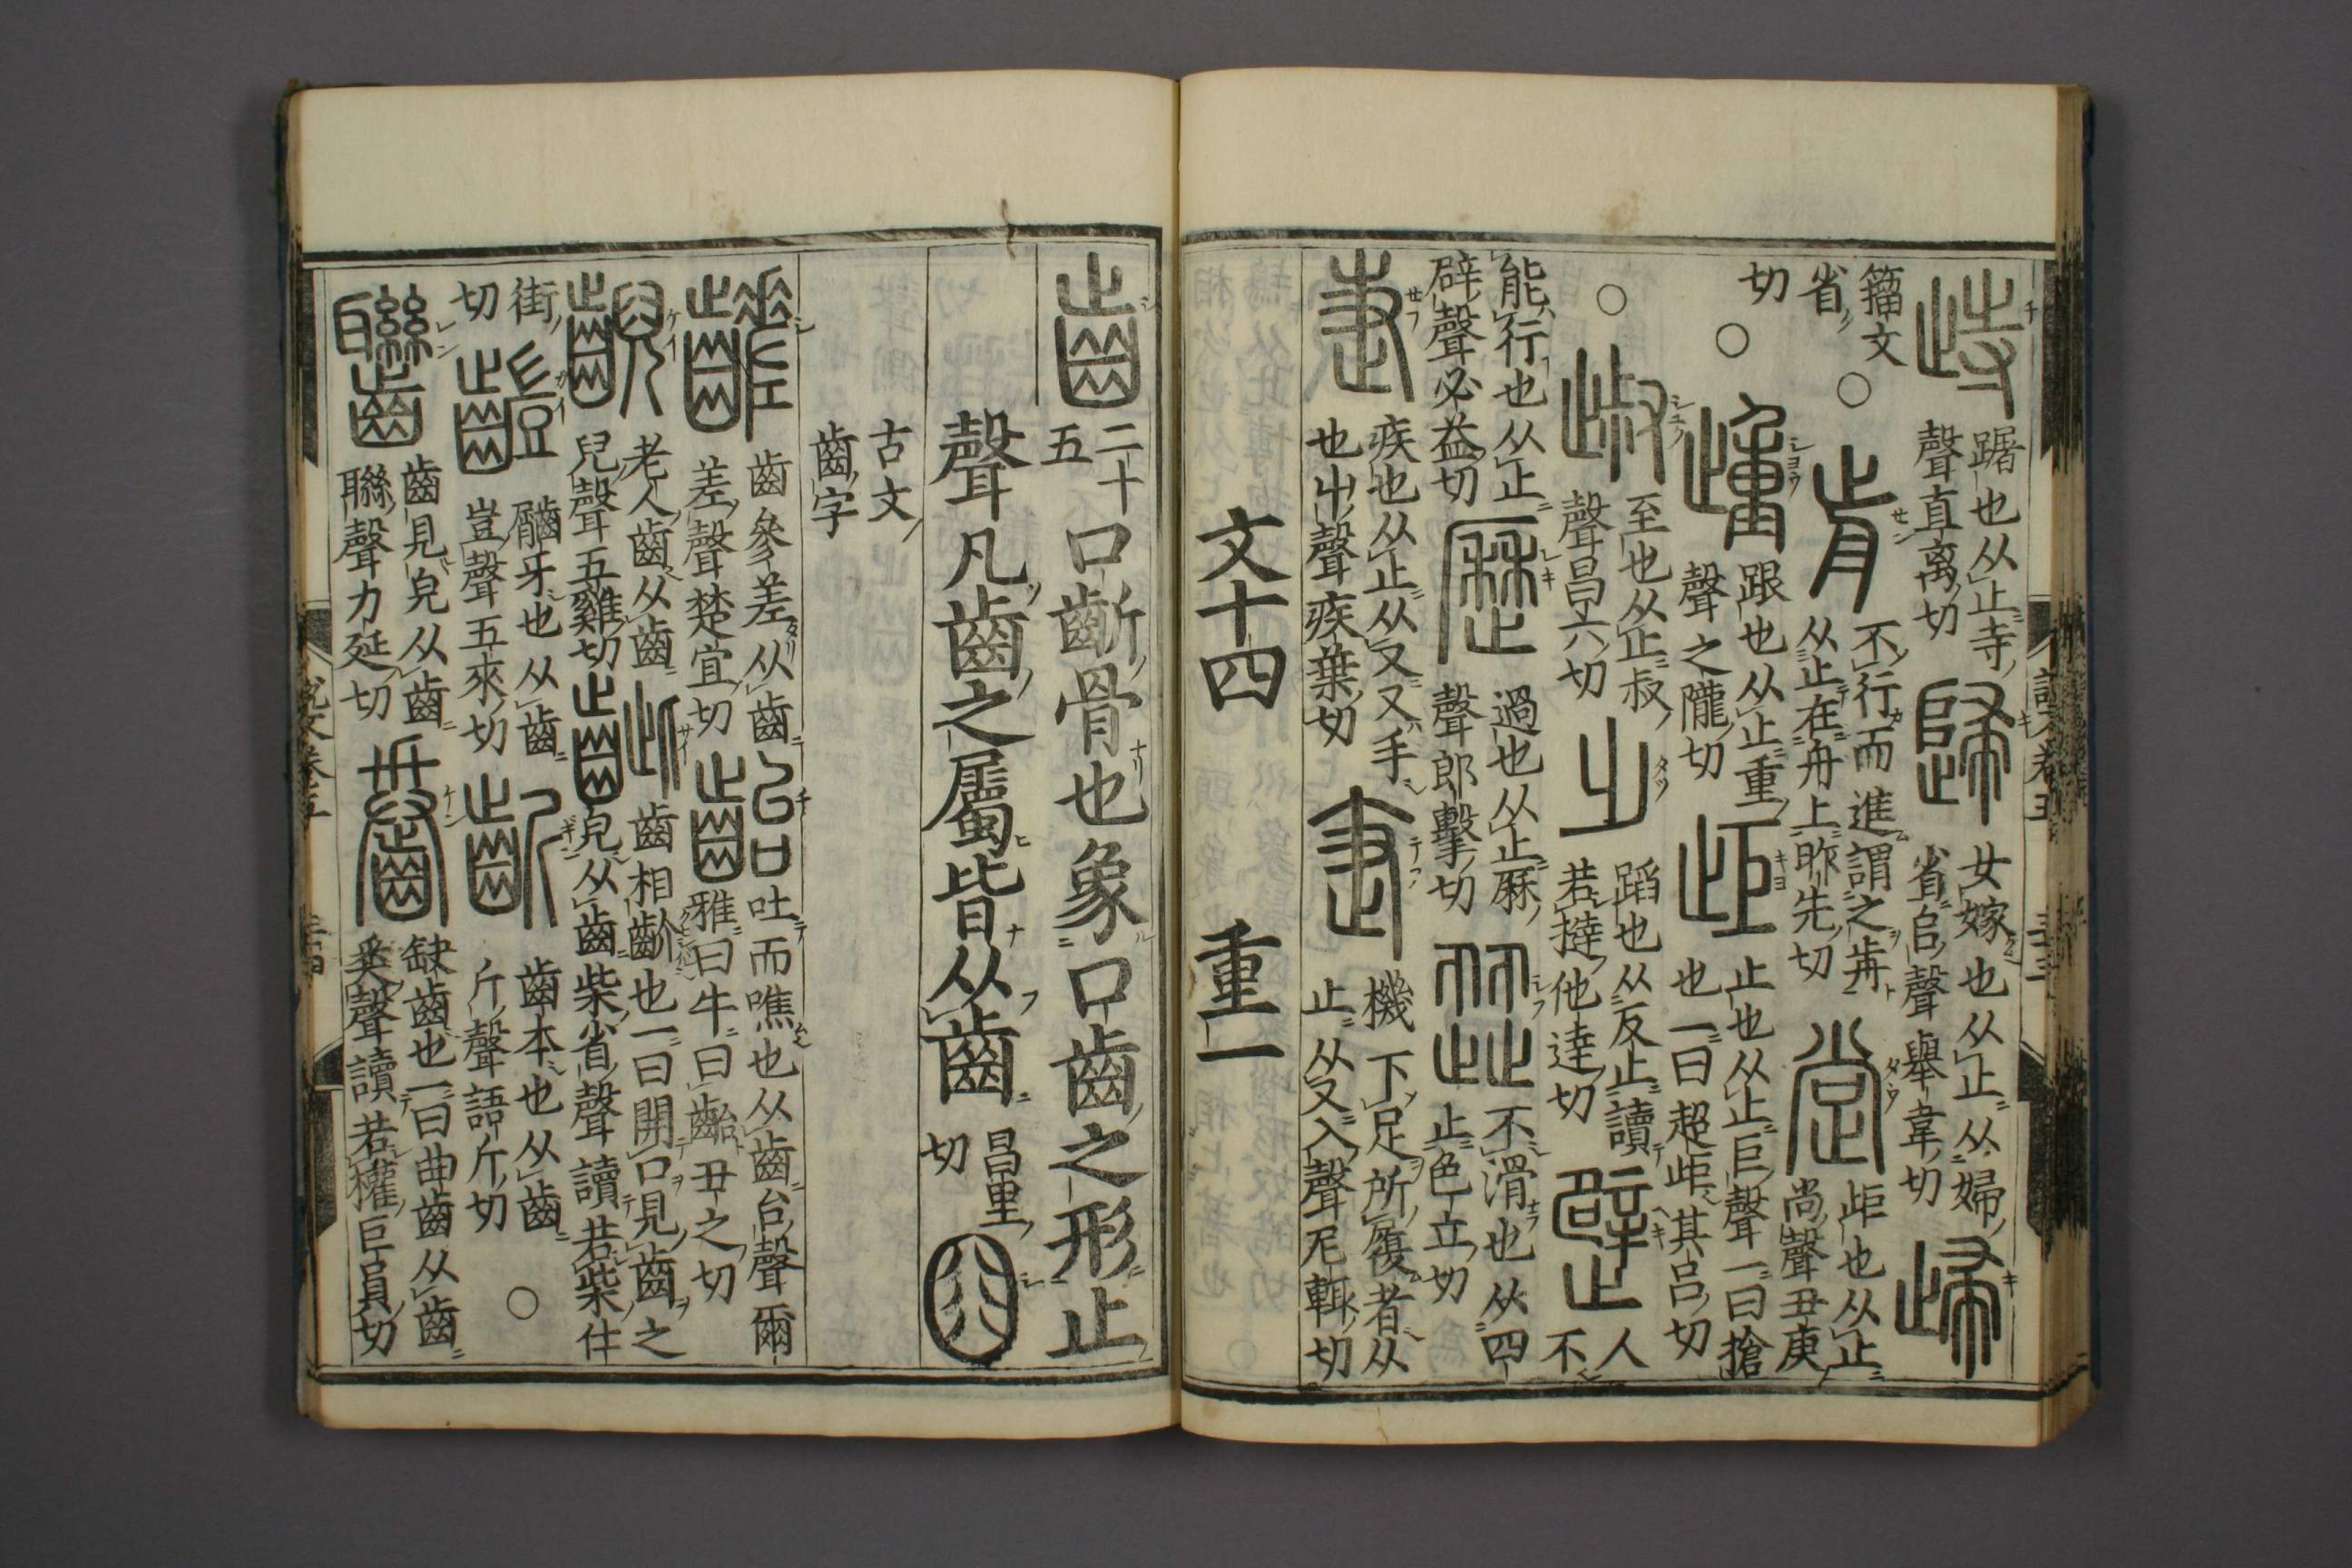 歭 踞也从止寺
聲直离切
歸 女嫁也从止从婦
省𠂤聲舉韋切
㱕
籒文
省
○ 歬 不行而進謂之歬
从止在舟上昨先切
㲂 歫也从止
尚聲丑庚
切
○ 歱 跟也从止重
聲之隴切
歫 止也从止巨聲一曰搶
也一曰超歫其呂切
○ 埱 至也从止叔
聲昌六切
𣥂 蹈也从反止讀
若撻他達切
壁 人
不
能行也从止
辟聲必益切
歷 過也从止厤
聲郎擊切
歰 不滑也从四
止色立切
疌 疾也从止从又又手
也屮聲疾葉切
疌 機下足所履者从
止从又入聲尼輒切
文十四 重一
齒 二十
五
口齗骨也象口齒之形止
聲凡齒之屬皆从齒 昌里
切
古文
齒字
齹 齒參差从齒
差聲楚宜切
齝 吐而噍也从齒台聲爾
雅曰牛曰齝丑之切
齯 老人齒从齒
兒聲五雞切
齜 齒相齘也一曰開口見齒之
皃从齒柴省聲讀若柴仕
街
切
齫牙也从齒
豈聲五來切
齗 齒本也从齒
斤聲語斤切
○
齒見皃从齒
聯聲力延切
齤 缺齒也一曰曲齒从齒
𢍏聲讀若權巨員切
説文卷五
三十三
説文卷五
三十四